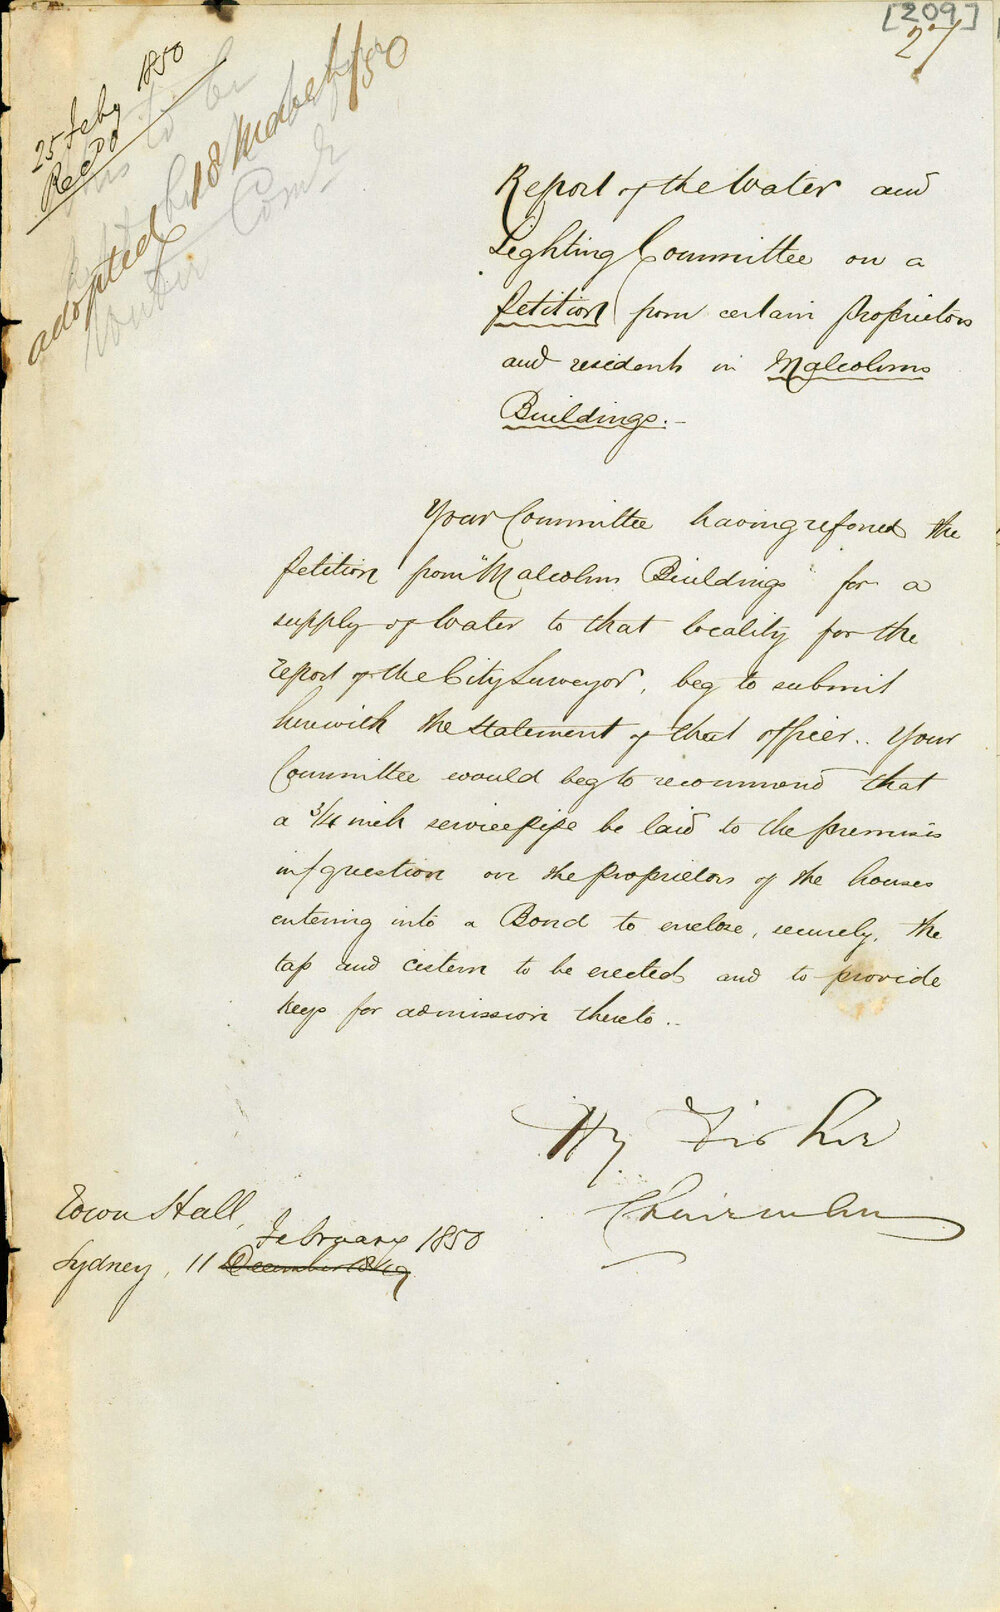 [209]
27
25 Feby 1850
Recd
adopted 18 March /50
Report of the Water and
Lighting Committee on a
Petition from certain proprietors
and residents in Malcolms
Buildings.-
Your Committee having referred the
petition from "Malcolms Buildings" for a
supply of Water to that locality for the
report of the City Surveyor, beg to submit
herewith the statement of that officer.. Your
Committee would beg to recommend that
a 3/4 inch service pipe be laid to the premises
in question on the proprietors of the houses
entering into a Bond to enclose, securely, the
tap and cistern to be erected and to provide
keys for admission thereto..
Hy Fisher
Chairman
Town Hall,
February 1850
Sydney, 11 December 1849